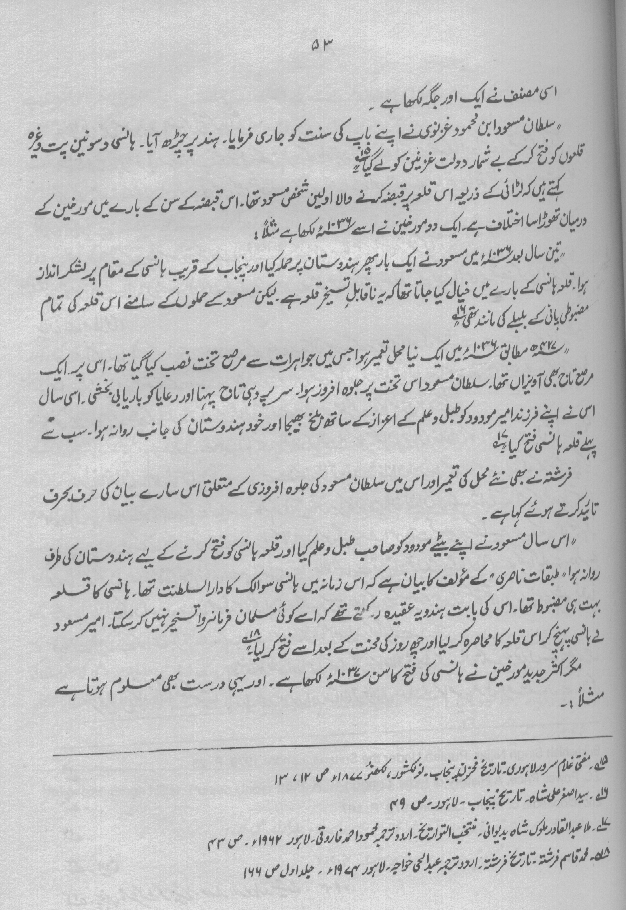 ۵۳
اسی مصنف نے ایک اور جگہ لکھا ہے ۔
"سلطان مسعود ابن محمود غزنوی نے اپنے باپ کی سنت کو جاری فرمایا۔ ہند پر چڑھ آیا۔ ہانسی و سونین پت وغیرہ
قلعوں کو فتح کر کے بے شمار دولت غزنین کو لے گیا"۱۵
کہتے ہیں کہ لڑائی کے ذریعہ اس قلعہ پر قبضہ کرنے والا اولین شخص مسعود تھا۔ اس قبضہ کے سن کے بارے میں مورخین کے
درمیان تھوڑا سا اختلاف ہے۔ ایک دو مورخین نے اسے ۱۰۳۶ء لکھا ہے مثلاً:
"تین سال بعد ۱۰۳۶ء میں مسعود نے ایک بار پھر ہندوستان پر حملہ کیا اور پنجاب کے قریب ہانسی کے مقام پر لشکر انداز
ہوا۔ قلعہ ہانسی کے بارے میں خیال کیا جاتا تھا کہ یہ ناقابل تسخیر قلعہ ہے۔ لیکن مسعود کے حملوں کے سامنے اس قلعہ کی تمام
مضبوطی پانی کے بلبلے کی مانند تھی"۱۶
"۴۲۷ھ مطابق ۱۰۳۶ء میں ایک نیا محل تعمیر ہوا جس میں جواہرات سے مرصع تخت نصب کیا گیا تھا۔ اس پر ایک
مرصع تاج بھی آویزاں تھا۔ سلطان مسعود اس تخت پر جلوہ افروز ہوا۔ سر پہ وہی تاج پہنا اور رعایا کو باریابی بخشی۔ اسی سال
اس نے اپنے فرزند امیر مودود کو طبل و علم کے اعزاز کے ساتھ بلخ بھیجا اور خود ہندوستان کی جانب روانہ ہوا۔ سب سے
پہلے قلعہ ہانسی فتح کیا"۱۷
فرشتہ نے بھی نئے محل کی تعمیر اور اس میں سلطان مسعود کی جلوہ افروزی کے متعلق اس سارے بیان کی حرف بحرف
تائید کرتے ہوئے کہا ہے ۔
"اس سال مسعود نے اپنے بیٹے مودود کو صاحب طبل و علم کیا اور قلعہ ہانسی کو فتح کرنے کے لیے ہندوستان کی طرف
روانہ ہوا" طبقات ناصری" کے مؤلف کا بیان ہے کہ اس زمانہ میں ہانسی سوالک کا دار السلطنت تھا۔ ہانسی کا قلعہ
بہت ہی مضبوط تھا۔ اس کی بابت ہندو یہ عقیدہ رکھتے تھے کہ اسے کوئی مسلمان فرمانروا تسخیر نہیں کر سکتا۔ امیر مسعود
نے ہانسی پہنچ کر اس قلعہ کا محاصرہ کر لیا اور چھ روز کی محنت کے بعد اسے فتح کر لیا"۱۸
مگر اکثر جدید مورخین نے ہانسی کی فتح کا سن ۱۰۳۷ء لکھا ہے۔ اور یہی درست بھی معلوم ہوتا ہے
مثلاً :۔
۱۵۔ مفتی غلام سرور لاہوری۔ تاریخ مخزن پنجاب۔ نولکشور، لکھنؤ ۱۸۷۷ء ص ۱۲، ۱۳
۱۶۔ سید اصغر علی شاہ۔ تاریخ پنجاب۔ لاہور۔ ص ۴۹
۱۷۔ ملا عبدالقادر ملوک شاہ بدایونی۔ منتخب التواریخ۔ اردو ترجمہ محمود احمد فاروقی۔ لاہور ۱۹۶۲ء۔ ص ۴۳
۱۸۔ محمد قاسم فرشتہ۔ تاریخ فرشتہ۔ اردو ترجمہ عبدالحی خواجہ۔ لاہور ۱۹۷۴ء۔ جلد اول ص ۱۶۶